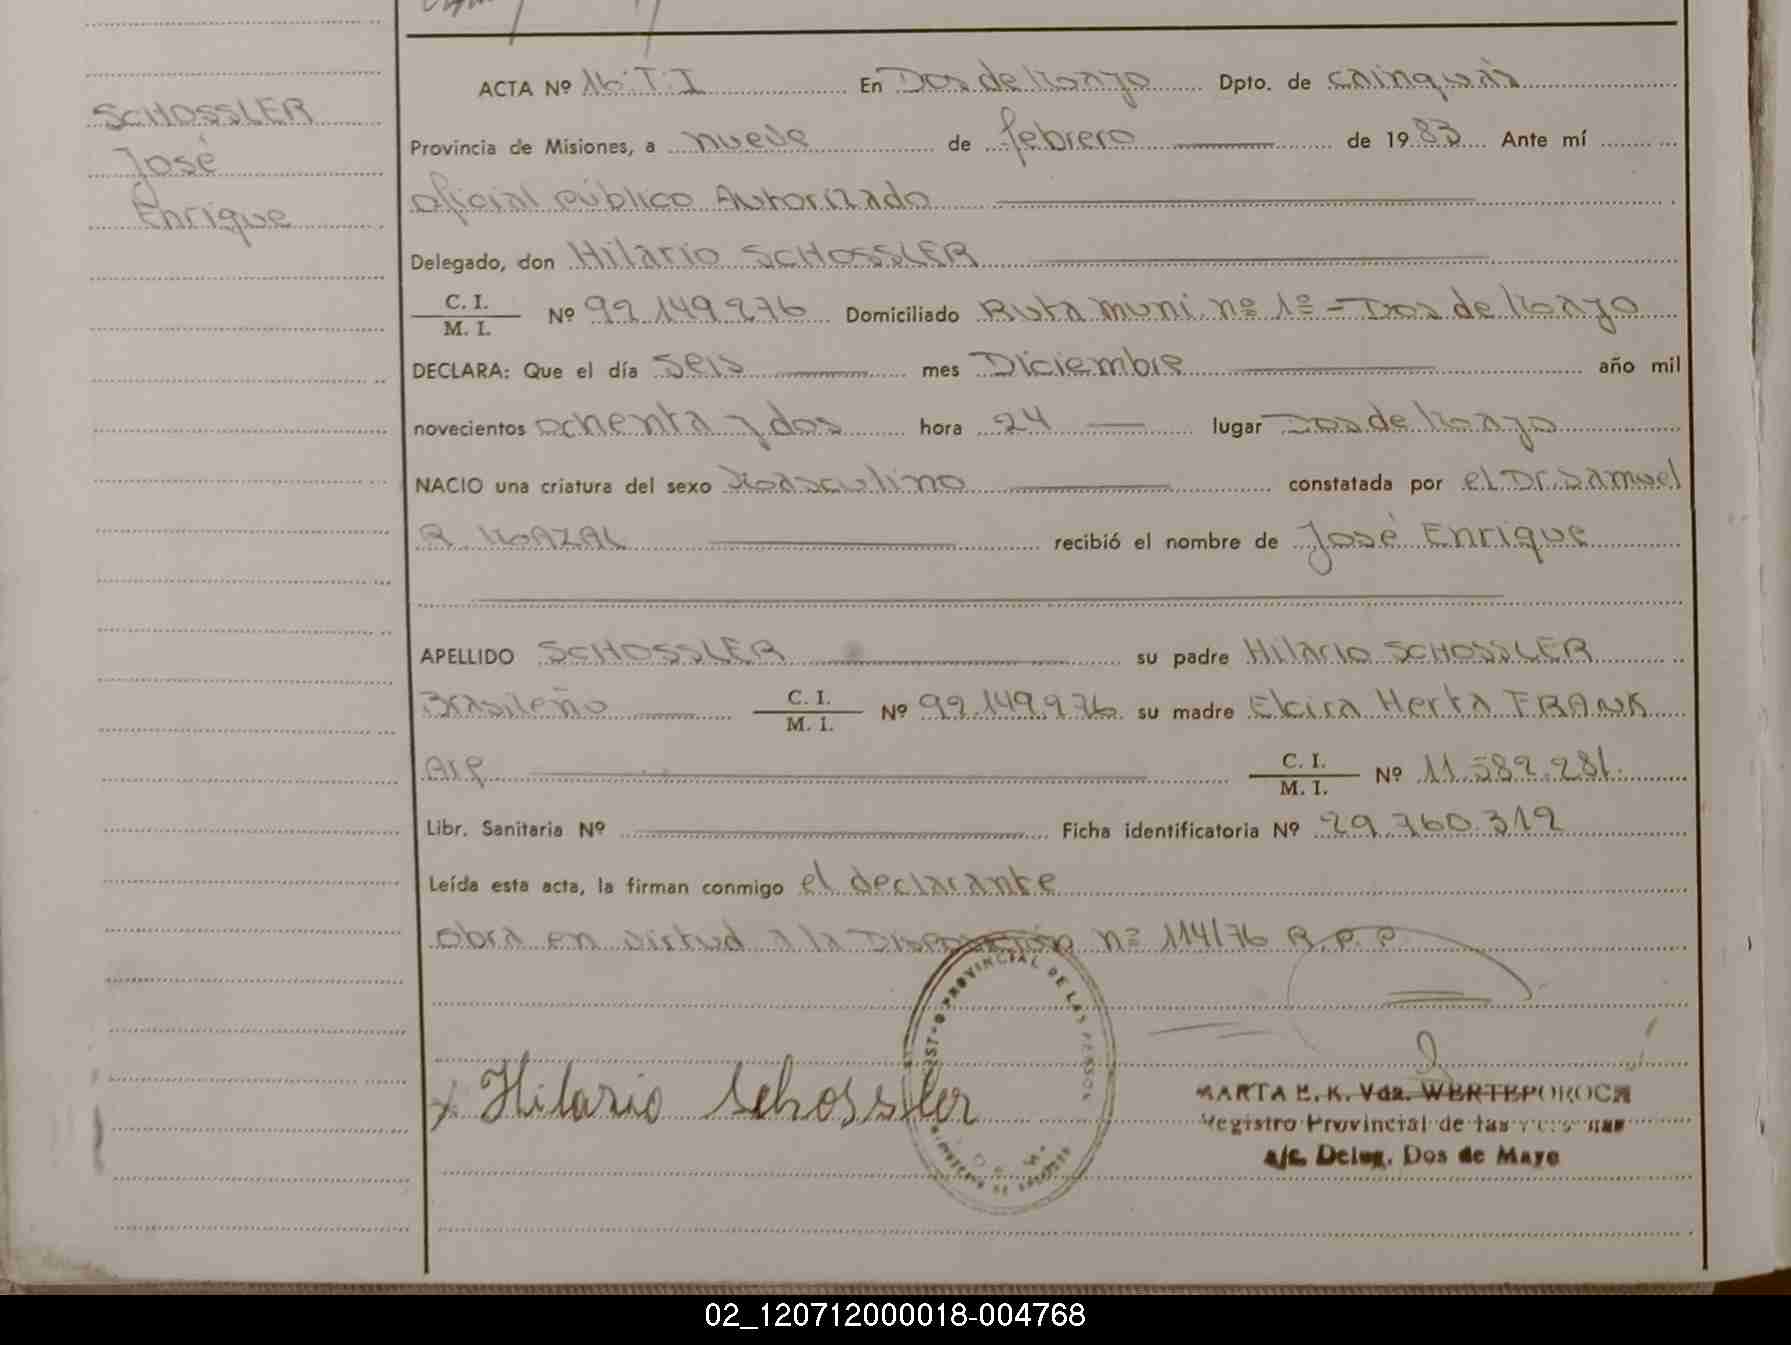 SCHOSSLER
José
Enrique
ACTA Nº 16 T. I En Dos de Mayo Dpto. de Cainguás
Provincia de Misiones, a nueve de febrero de 1983 Ante mí
oficial público Autorizado
Delegado, don Hilario SCHOSSLER
C. I.
M. I. Nº 92.149.276 Domiciliado Ruta muni. nº 1º - Dos de Mayo
DECLARA: Que el día seis mes Diciembre año mil
novecientos ochenta y dos hora 24 lugar Dos de Mayo
NACIO una criatura del sexo Masculino constatada por el Dr. Samuel
R. MAZAL recibió el nombre de José Enrique
APELLIDO SCHOSSLER su padre Hilario SCHOSSLER
Brasileño C. I. M. I. Nº 92.149.276 su madre Elcira Herta FRANK
Arg. C. I. M. I. Nº 11.582.281.
Libr. Sanitaria Nº Ficha identificatoria Nº 29.760.312
Leída esta acta, la firman conmigo el declarante
obra en virtud a la Disposición nº 114/76 R.P.P.
Hilario Schossler
PROVINCIAL DE LAS PERSON
MARTA E. K. Vda. WERTEPOROCH
Registro Provincial de las
a/c. Deleg. Dos de Mayo
02_120712000018-004768